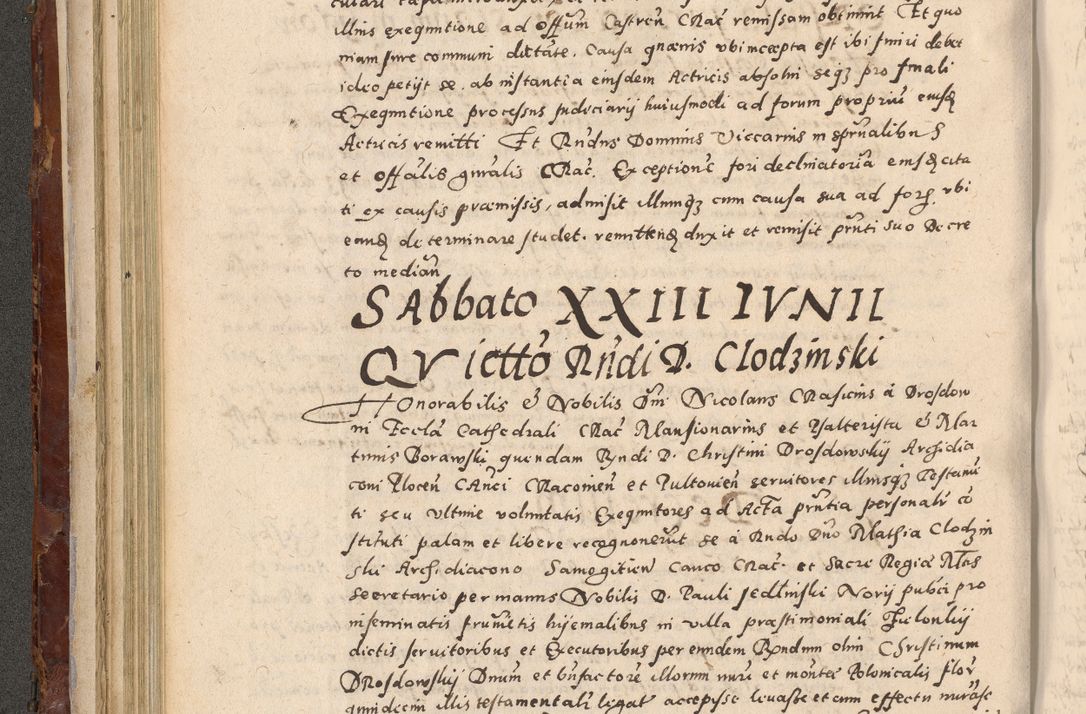 illius exequutione ad offm Castren Crac remissam obtinuit Et quo
niam jure communi dictate. Causa quævis ubi incæpta est ibi finiri debet
ideo petijt se ab instantia eiusdem Actricis absolui seq3 pro finali
Exequutione processus Judiciarij huiusmodi ad forum propriu eiusd
Actricis remitti Et Rndus Dominus Viccarius in sprualibus
et offalis gnralis Crac. Exceptione fori declinatoria eiusd cita
ti ex causis præmissis, admisit illumq3 cum causa sua ad for ubi
eand determinare studet. remittend duxit et remisit prnti suo Decre
to median
SAbbato XXIII IVNII
QVietto Rndi D. Clodzinski
HOnorabilis & Nobilis Dni Nicolaus Crasicius a Drosdow
in Eccla Cathedrali Crac Mansionarius et Psalterista & Mar
tinus Borawski quendam Rndi D. Christini Drosdowskij Archidia
coni Plocen CAnci Cracouien et Pultouien seruitores illiusq3 Testamen
ti seu ultime voluntatis Exequutores ad Acta prntia personalr co
stituti palam et libere recognouerut se a Rndo Dno Mathia Clodzin
ski Archidiacono Samogitien Canco Crac. et Sacre Regiæ Mtas
Secretario per manus Nobilis D. Pauli Jedlinski Norij publici pro
inseminatis frumetis hijemalibus in villa præstimoniali Zielonkij
dictis seruitoribus et Executoribus per eundem Rndum olim Christinum
DRosdowskij Dnum et bnfactore illorum nuri et monetæ Polonicalis flor
quindecim illis testamentalr legat accepisse leuasse et cum effectu